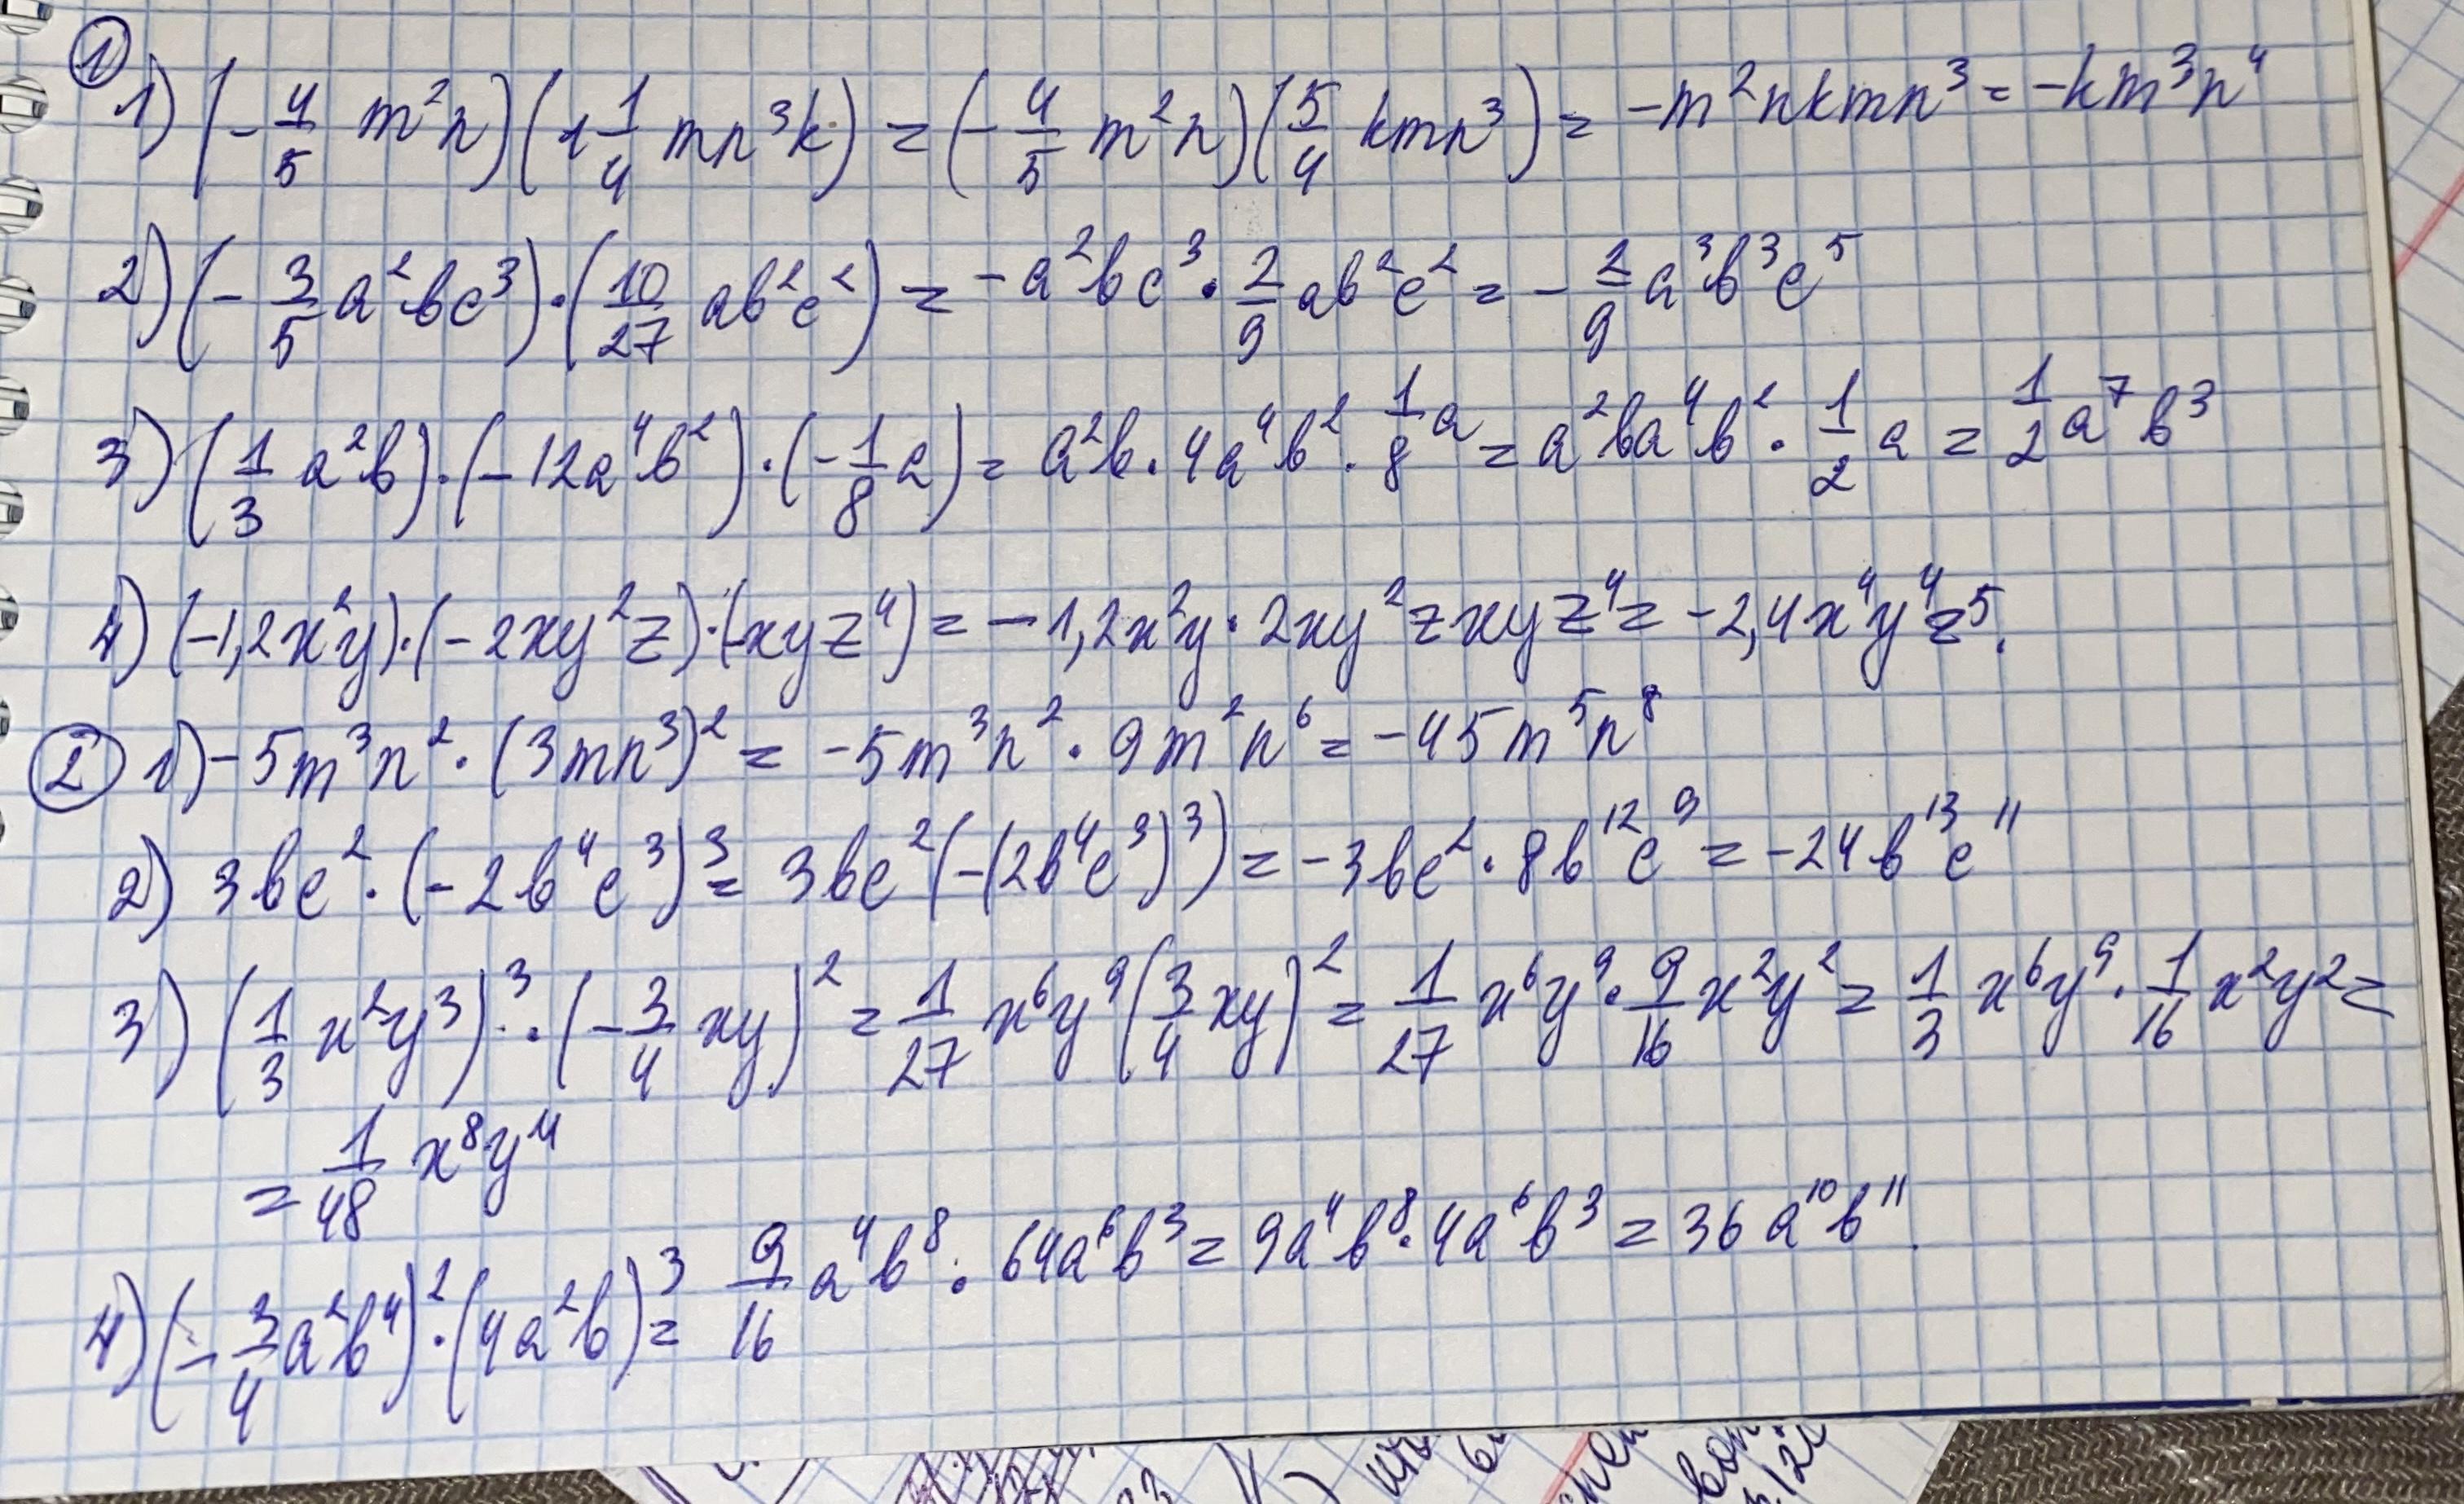 ①
1) (-4/5 m²n)(1 1/4 mn³k) = (-4/5 m²n)(5/4 kmn³) = -m²nkmn³ = -km³n⁴
2) (-3/5 a²bc³)·(10/27 ab²c²) = -a²bc³·2/9 ab²c² = -2/9 a³b³c⁵
3) (1/3 a²b)·(-12a⁴b²)·(-1/8 a) = a²b·4a⁴b²·1/8 a = a²ba⁴b²·1/2 a = 1/2 a⁷b³
4) (-1,2x²y)·(-2xy²z)·(-xyz⁴) = -1,2x²y·2xy²zxyz⁴ = -2,4x⁴y⁴z⁵.
② 1) -5m³n²·(3mn³)² = -5m³n²·9m²n⁶ = -45m⁵n⁸
2) 3bc²·(-2b⁴c³)³ = 3bc²(-(2b⁴c³)³) = -3bc²·8b¹²c⁹ = -24b¹³c¹¹
3) (1/3 x²y³)³·(-3/4 xy)² = 1/27 x⁶y⁹(3/4 xy)² = 1/27 x⁶y⁹·9/16 x²y² = 1/3 x⁶y⁹·1/16 x²y² =
= 1/48 x⁸y¹¹
4) (-3/4 a²b⁴)²·(4a²b)³ = 9/16 a⁴b⁸·64a⁶b³ = 9a⁴b⁸·4a⁶b³ = 36a¹⁰b¹¹.